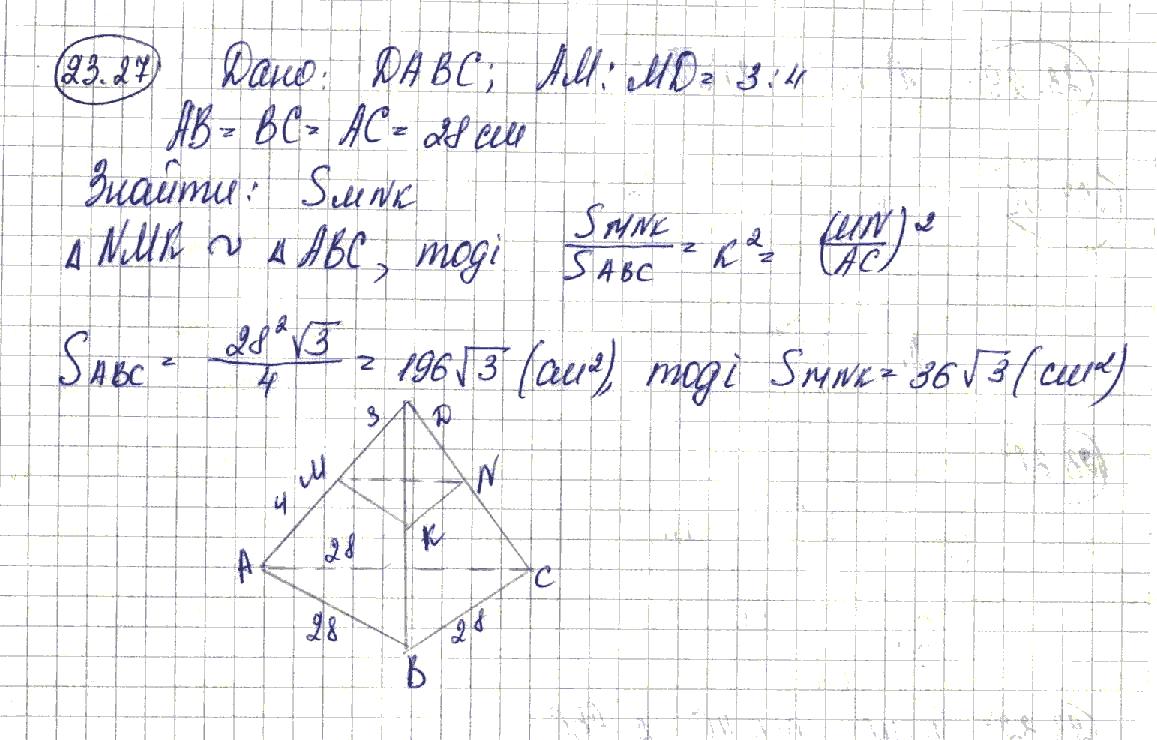 23.27 Дано: DABC; AM:MD=3:4
AB=BC=AC=28 см
Знайти: SMNK
△NMK ~ △ABC, тоді SMNK/SABC = K² = (MN/AC)²
SABC = 28²√3/4 = 196√3 (см²), тоді SMNK = 36√3 (см²)
3 D
M N
4
K
A 28 C
28 28
B